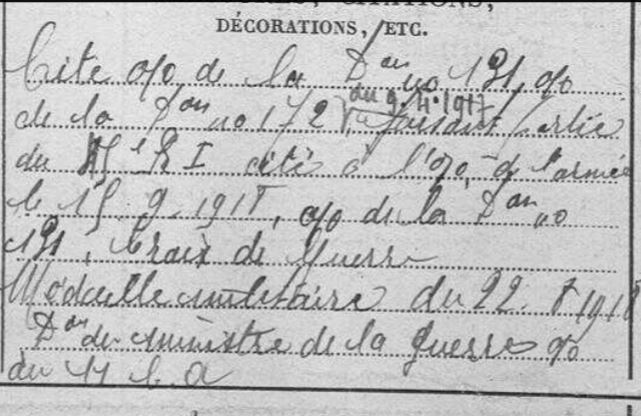 DÉCORATIONS, ETC.
Cité o/o de la Don no 131, o/o
de la Don no 172 du 9.4.1917 faisant partie
du RI cité à l'o/o de l'armée
le 15.9.1918, o/o de la Don no
131, Croix de Guerre
Médaille militaire du 22. 8 1918
Don du ministre de la Guerre o/o
du